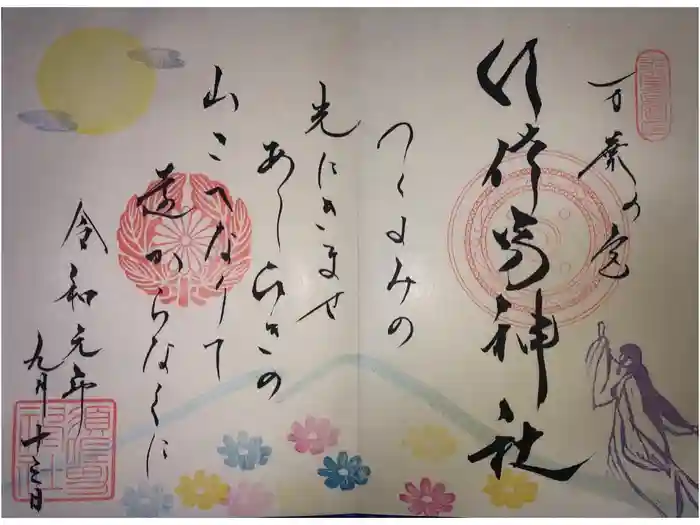 万葉の宮
神社
つくよみの
光にきませ
あしひきの
山こへなりて
遠からなくに
令和元年
九月十三日